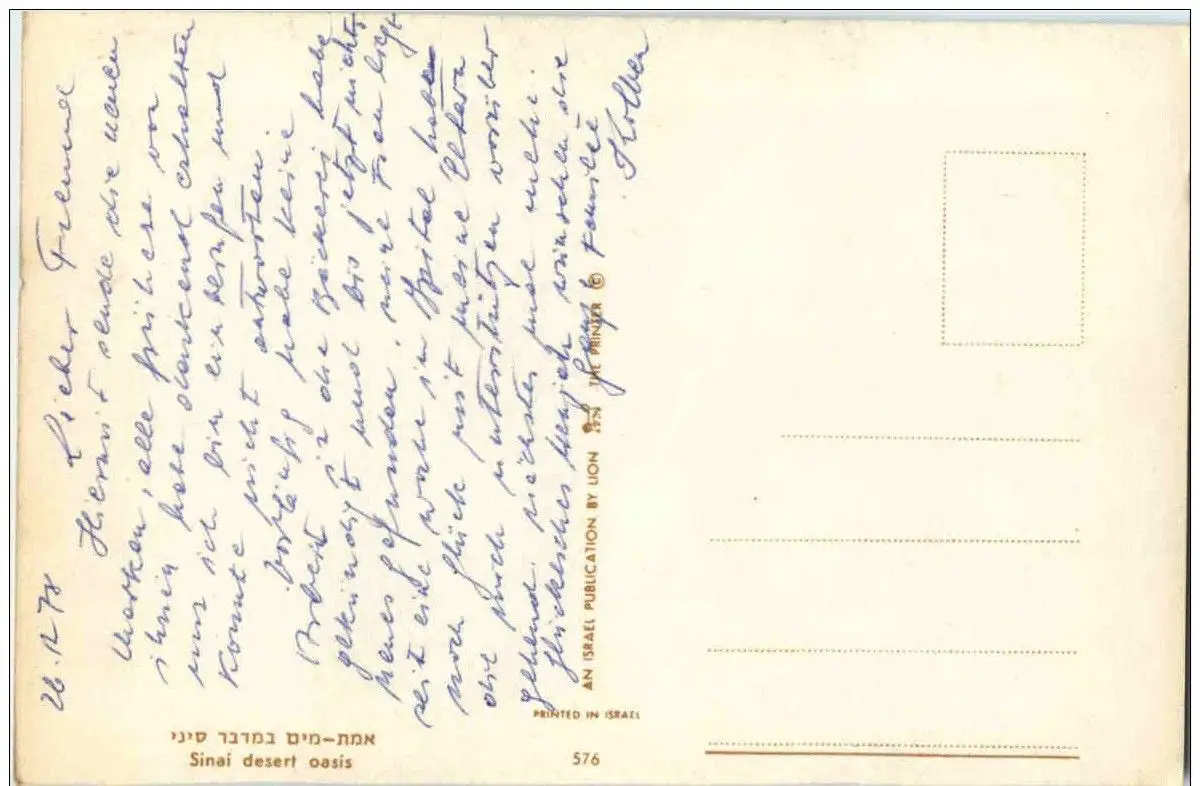 26.12.78
Lieber Freund
Hiermit sende die neuen
Marken, alle frühere von
ihnen habe dankend erhalten
nur ich bin ein bernfen und
konnte nicht antworten
vorläufig habe keine
Arbeit, in die Bäckerei habe
gekündigt und bis jetzt nichts
neues gefunden, meine Frau liegt
seit eine woche in Spital habe
noch Glück mit meine Eltern
die mich unterstützen vorüber
gehend. nächstes mal mehr.
Glückliches Neujahr wünschen die
ganze Familie
Kolber
AN ISRAEL PUBLICATION BY LION THE PRINTER ©
PRINTED IN ISRAEL
אמת-מים במדבר סיני
Sinai desert oasis
576